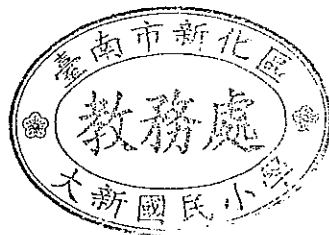 臺南市新化區
教務處
大新國民小學